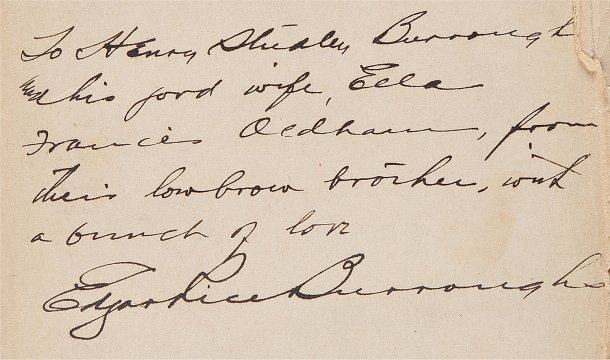 To Henry Studley Burroughs
and his good wife, Ella
Frances Oldham, from
their lowbrow brother, with
a bunch of love
Edgar Rice Burroughs